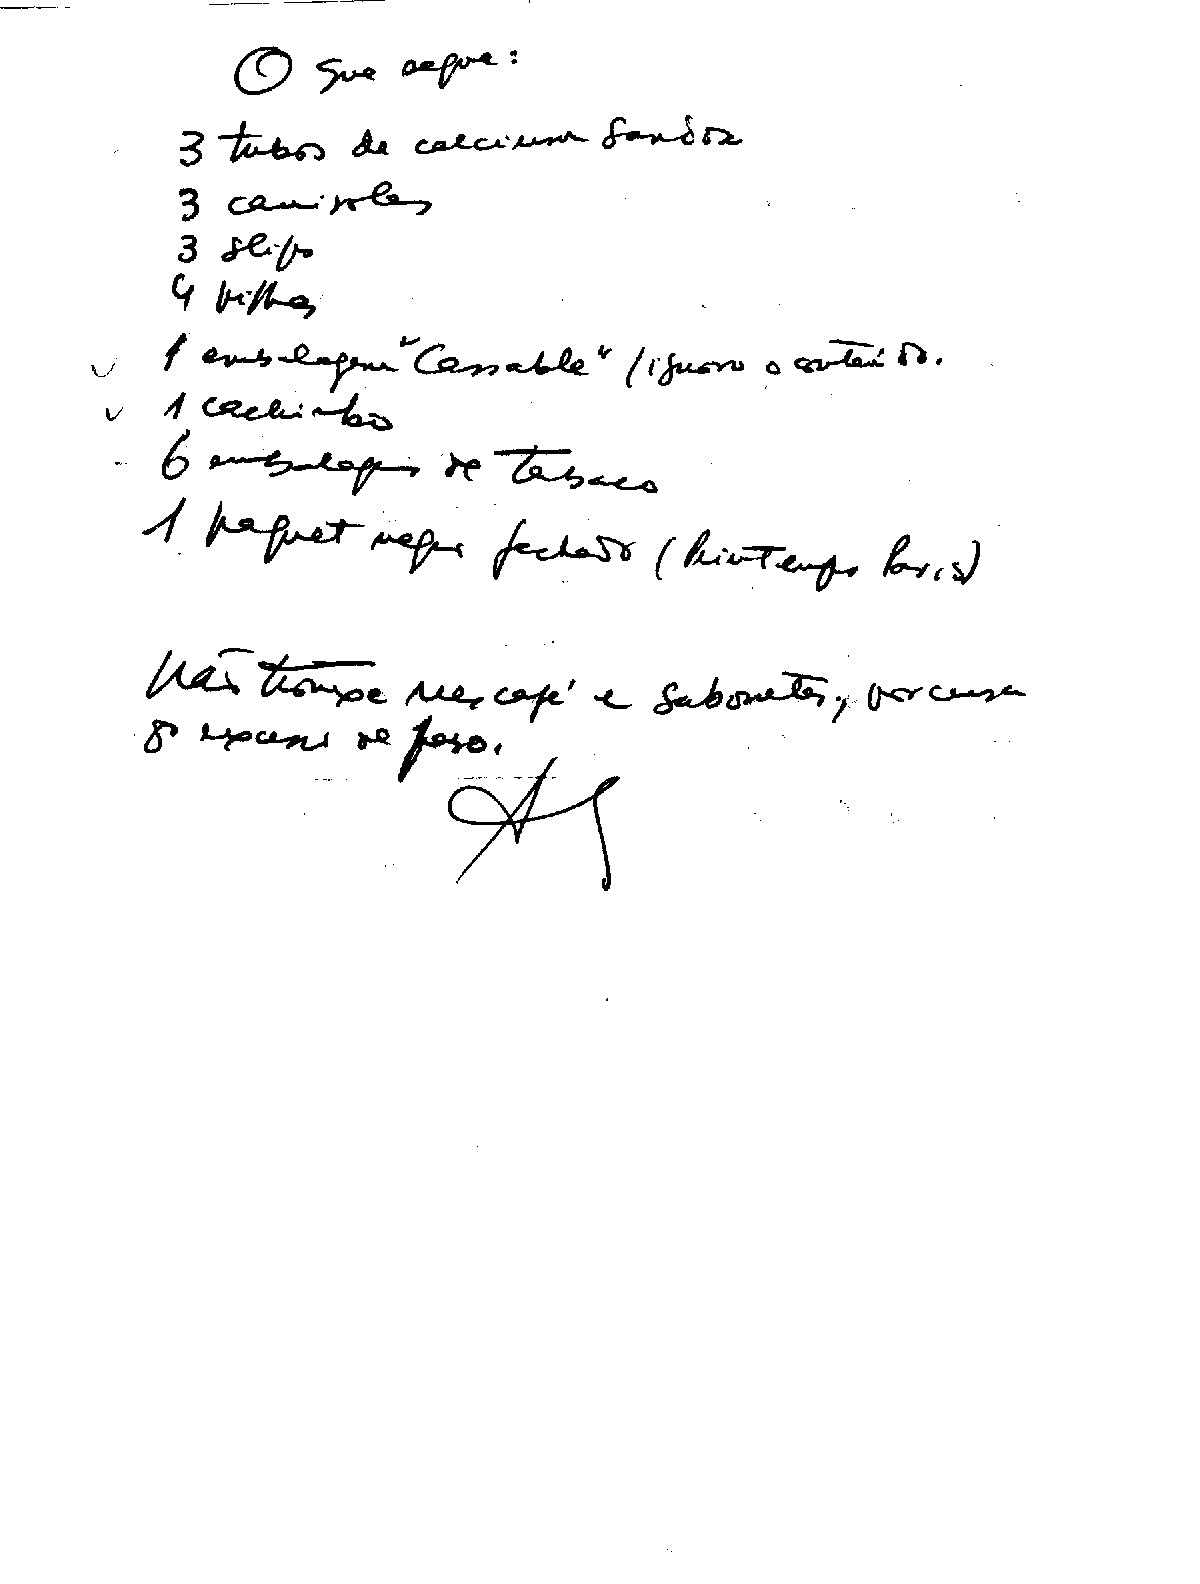 O que segue:
3 tubos de calcium Sandoz
3 camisolas
3 slips
4 pilhas
1 embalagem "Cassable" (ignoro o conteúdo.
1 cachimbo
6 embalagens de tabaco
1 paquet negro fechado (Printemps Paris)
Não trouxe nescafé e sabonetes, por causa
do excesso de peso.